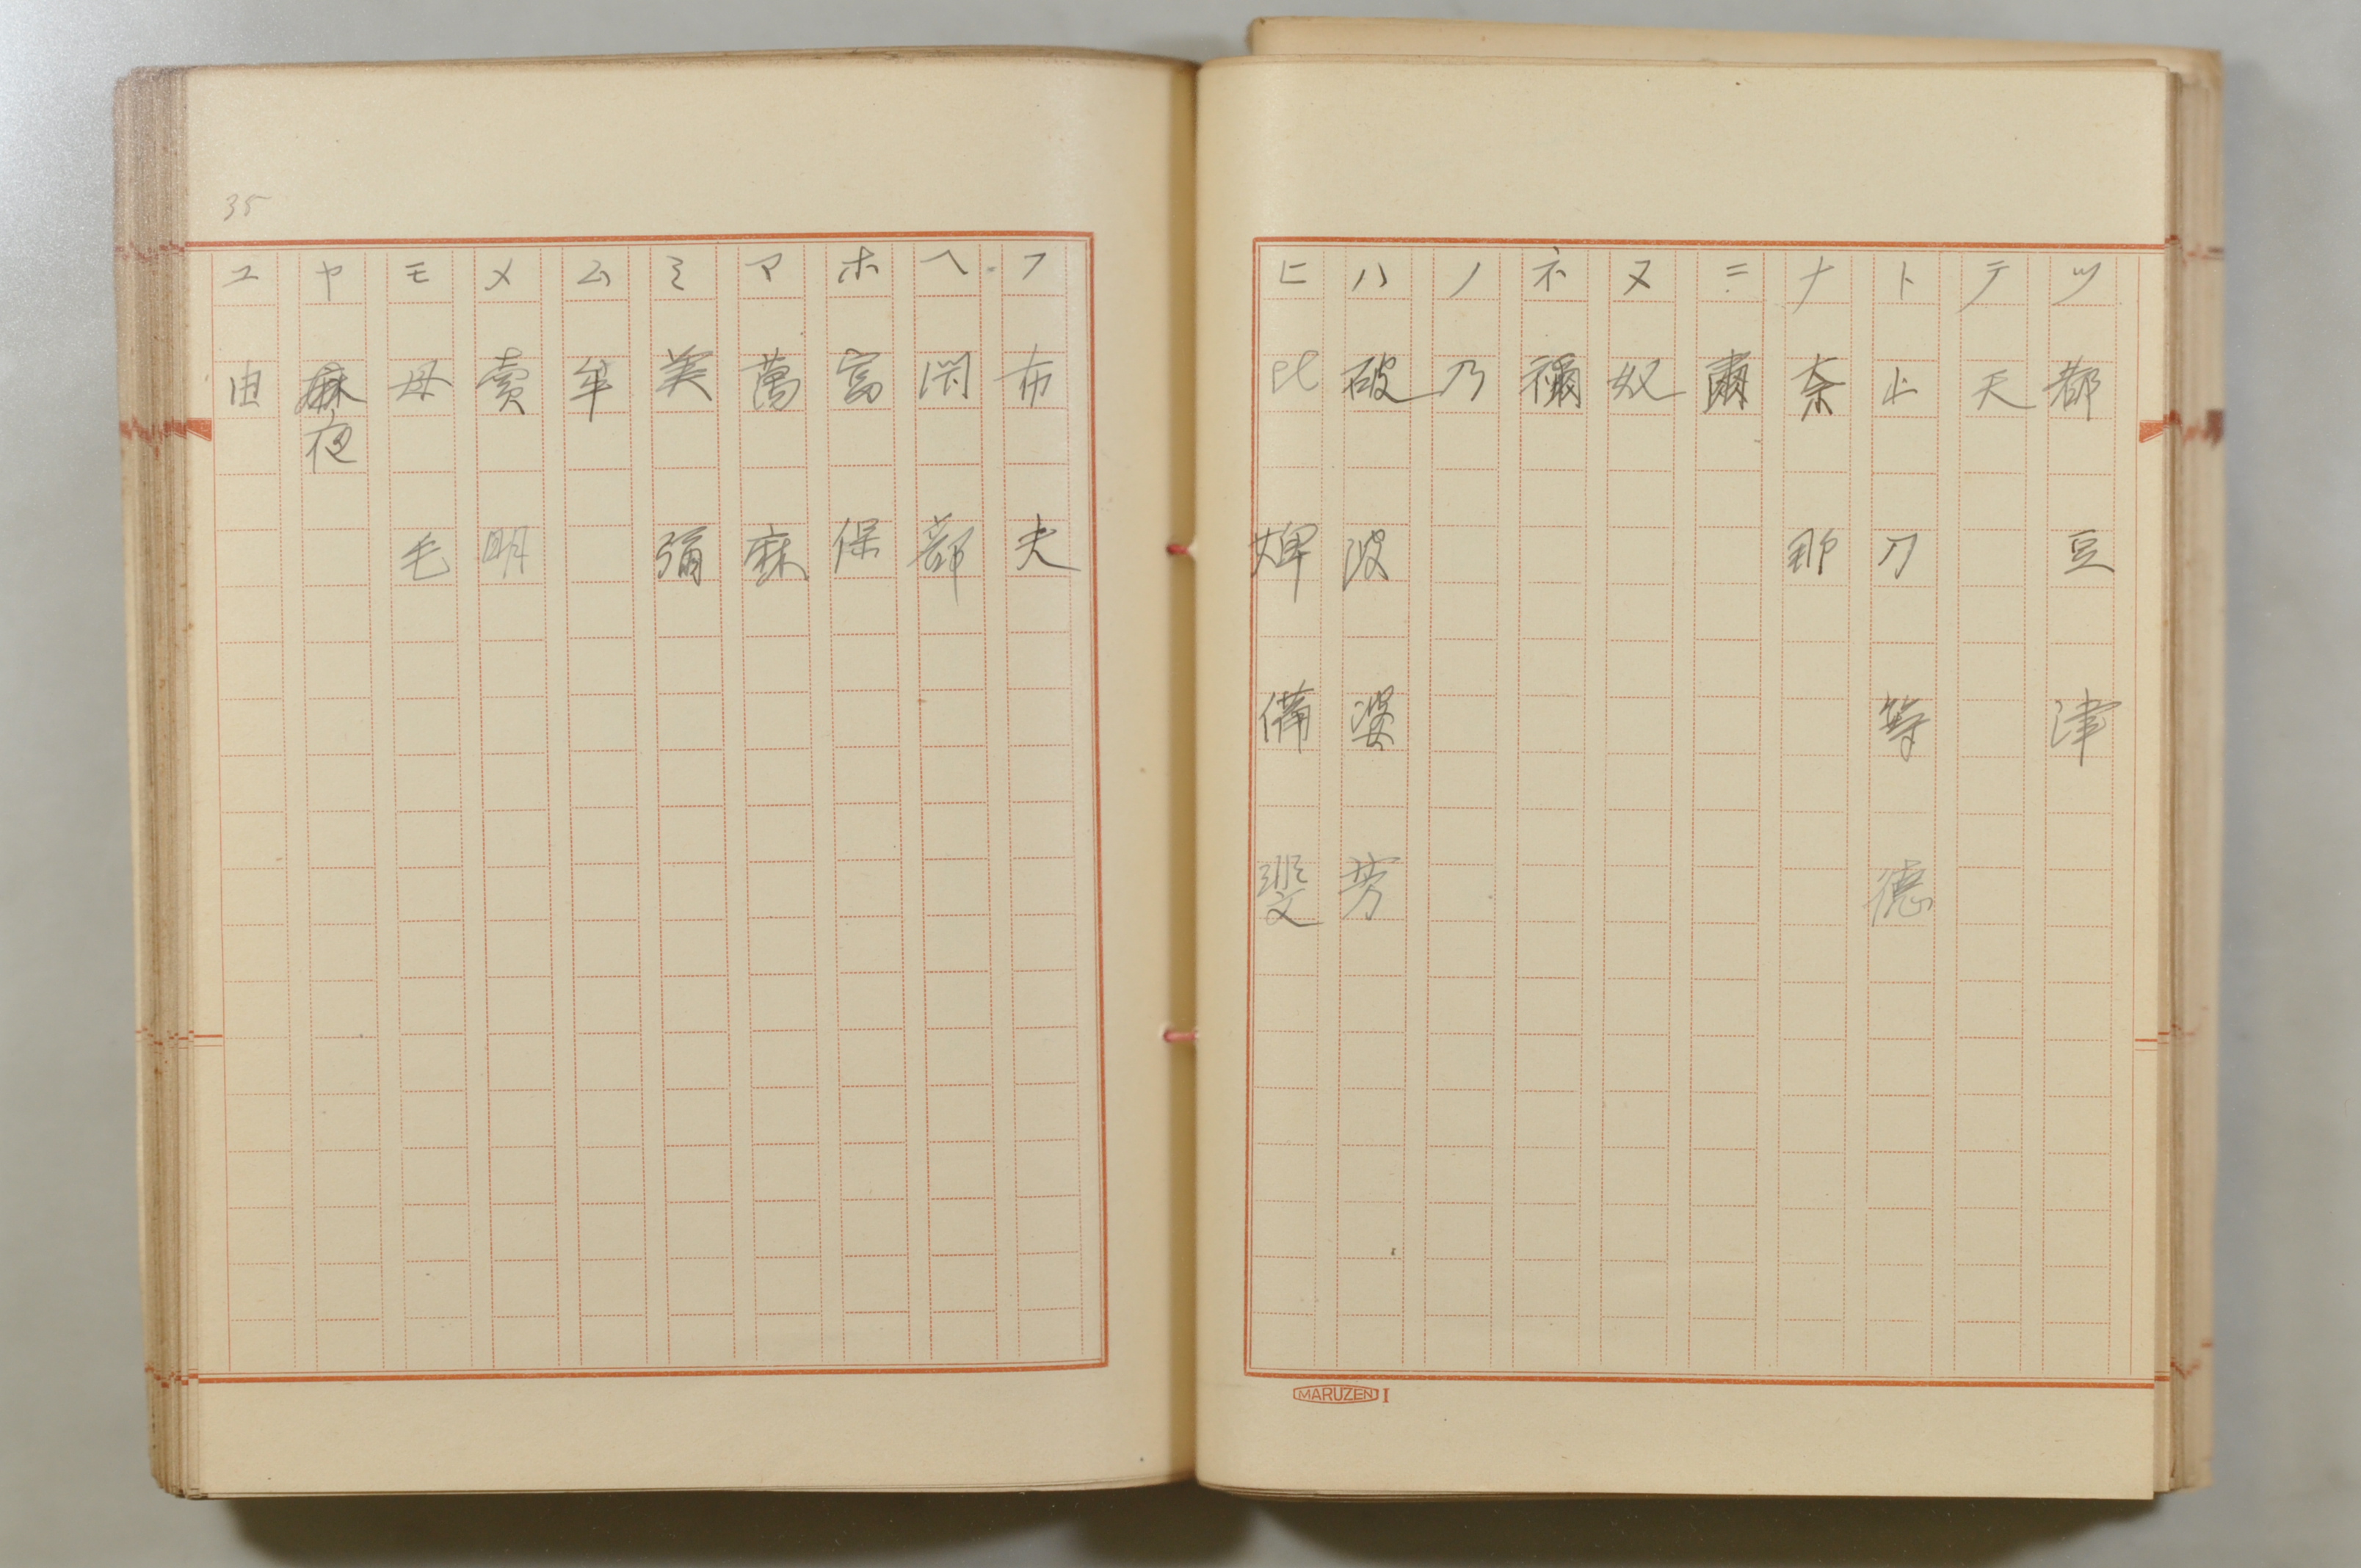 ツ 都 豆 津
テ 天
ト 止 刀 等 徳
ナ 奈 那
ニ 爾
ヌ 奴
ネ 禰
ノ 乃
ハ 破 波 婆 芳
ヒ 比 婢 備
MARUZEN I
35
フ 布 夫
ヘ 部
ホ 富 保
マ 萬 麻
ミ 美 彌
ム 牟
メ 賣 明
モ 母 毛
ヤ 麻 夜
ユ 由